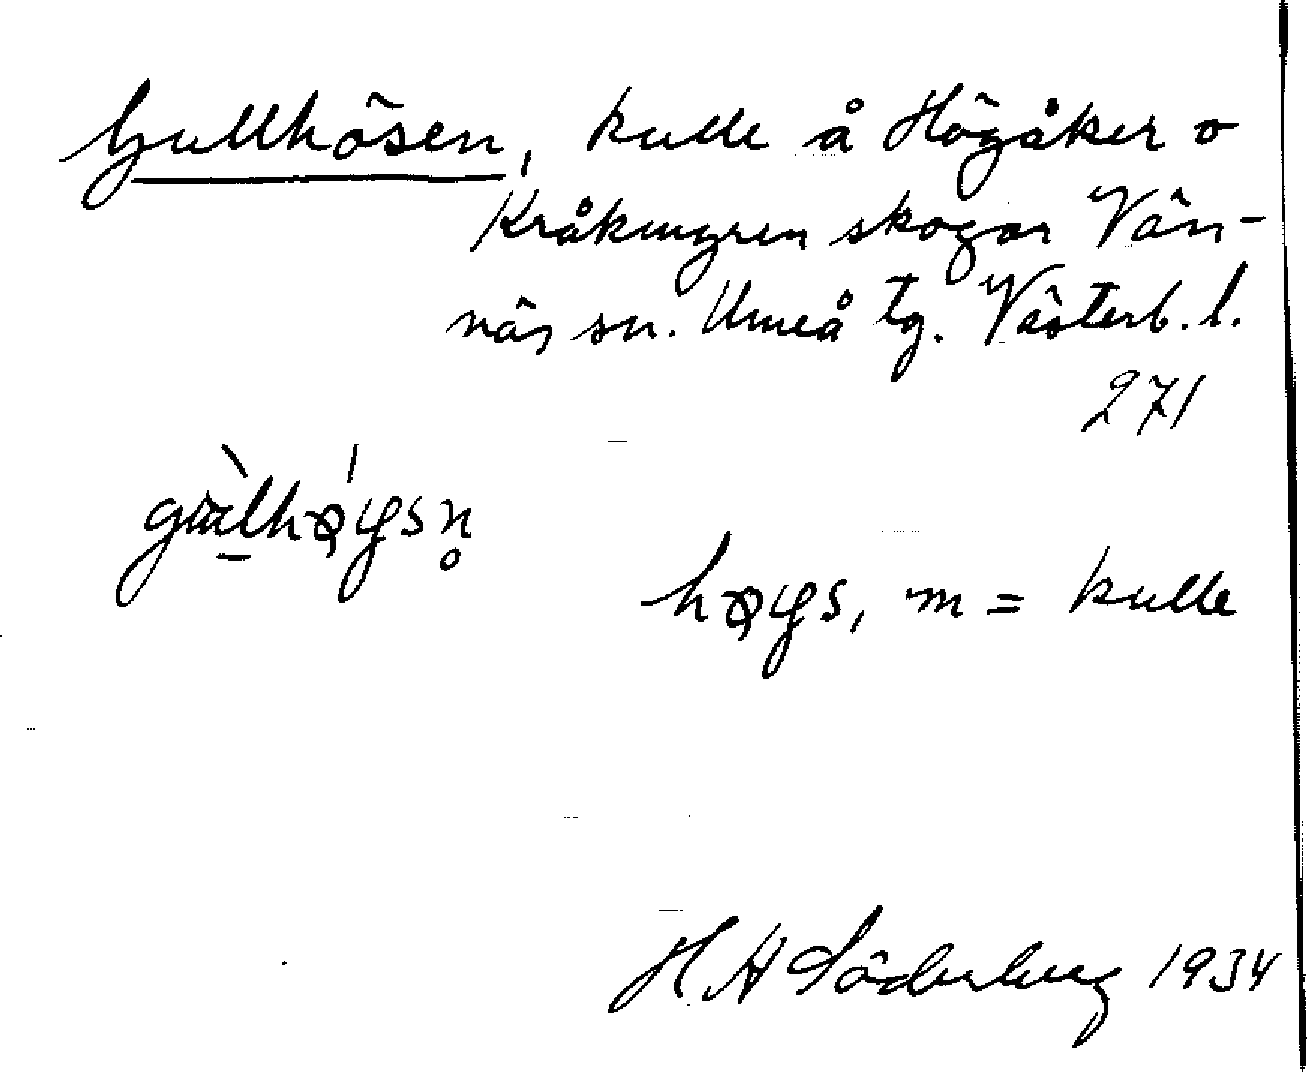 Gullhösen, kulle å Högåker o
Kråkmyren skogar Vän-
näs sn. Umeå tg. Västerb. l.
271
høys, m = kulle
H H Söderberg 1934